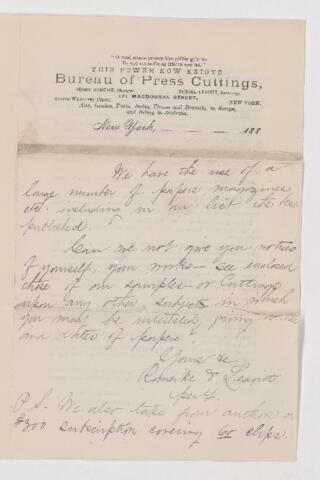 "O wad some power the giftie gi'e us
To see oursel's as ithers see us."
THIS POWER NOW EXISTS.
Bureau of Press Cuttings,
HENRY ROMEIKE, Manager. SAMUEL LEAVITT, Secretary.
171 MACDOUGAL STREET,
NEW YORK.
Also, London, Paris, Berlin, Vienna and Brussels, in Europe,
and Sidney in Australia.
New York, 188
We have the use of a
large number of papers magazines
etc. including in our list
published.
Can we not give you notices
of yourself, your works – see enclosed
of our samples – or Cuttings
upon any other subject in which
you may be interested, giving
and dates of papers?
Yours &c
Romeike & Leavitt
per
P.S. We also take from authors a
$3.00 subscription covering 60 clips.